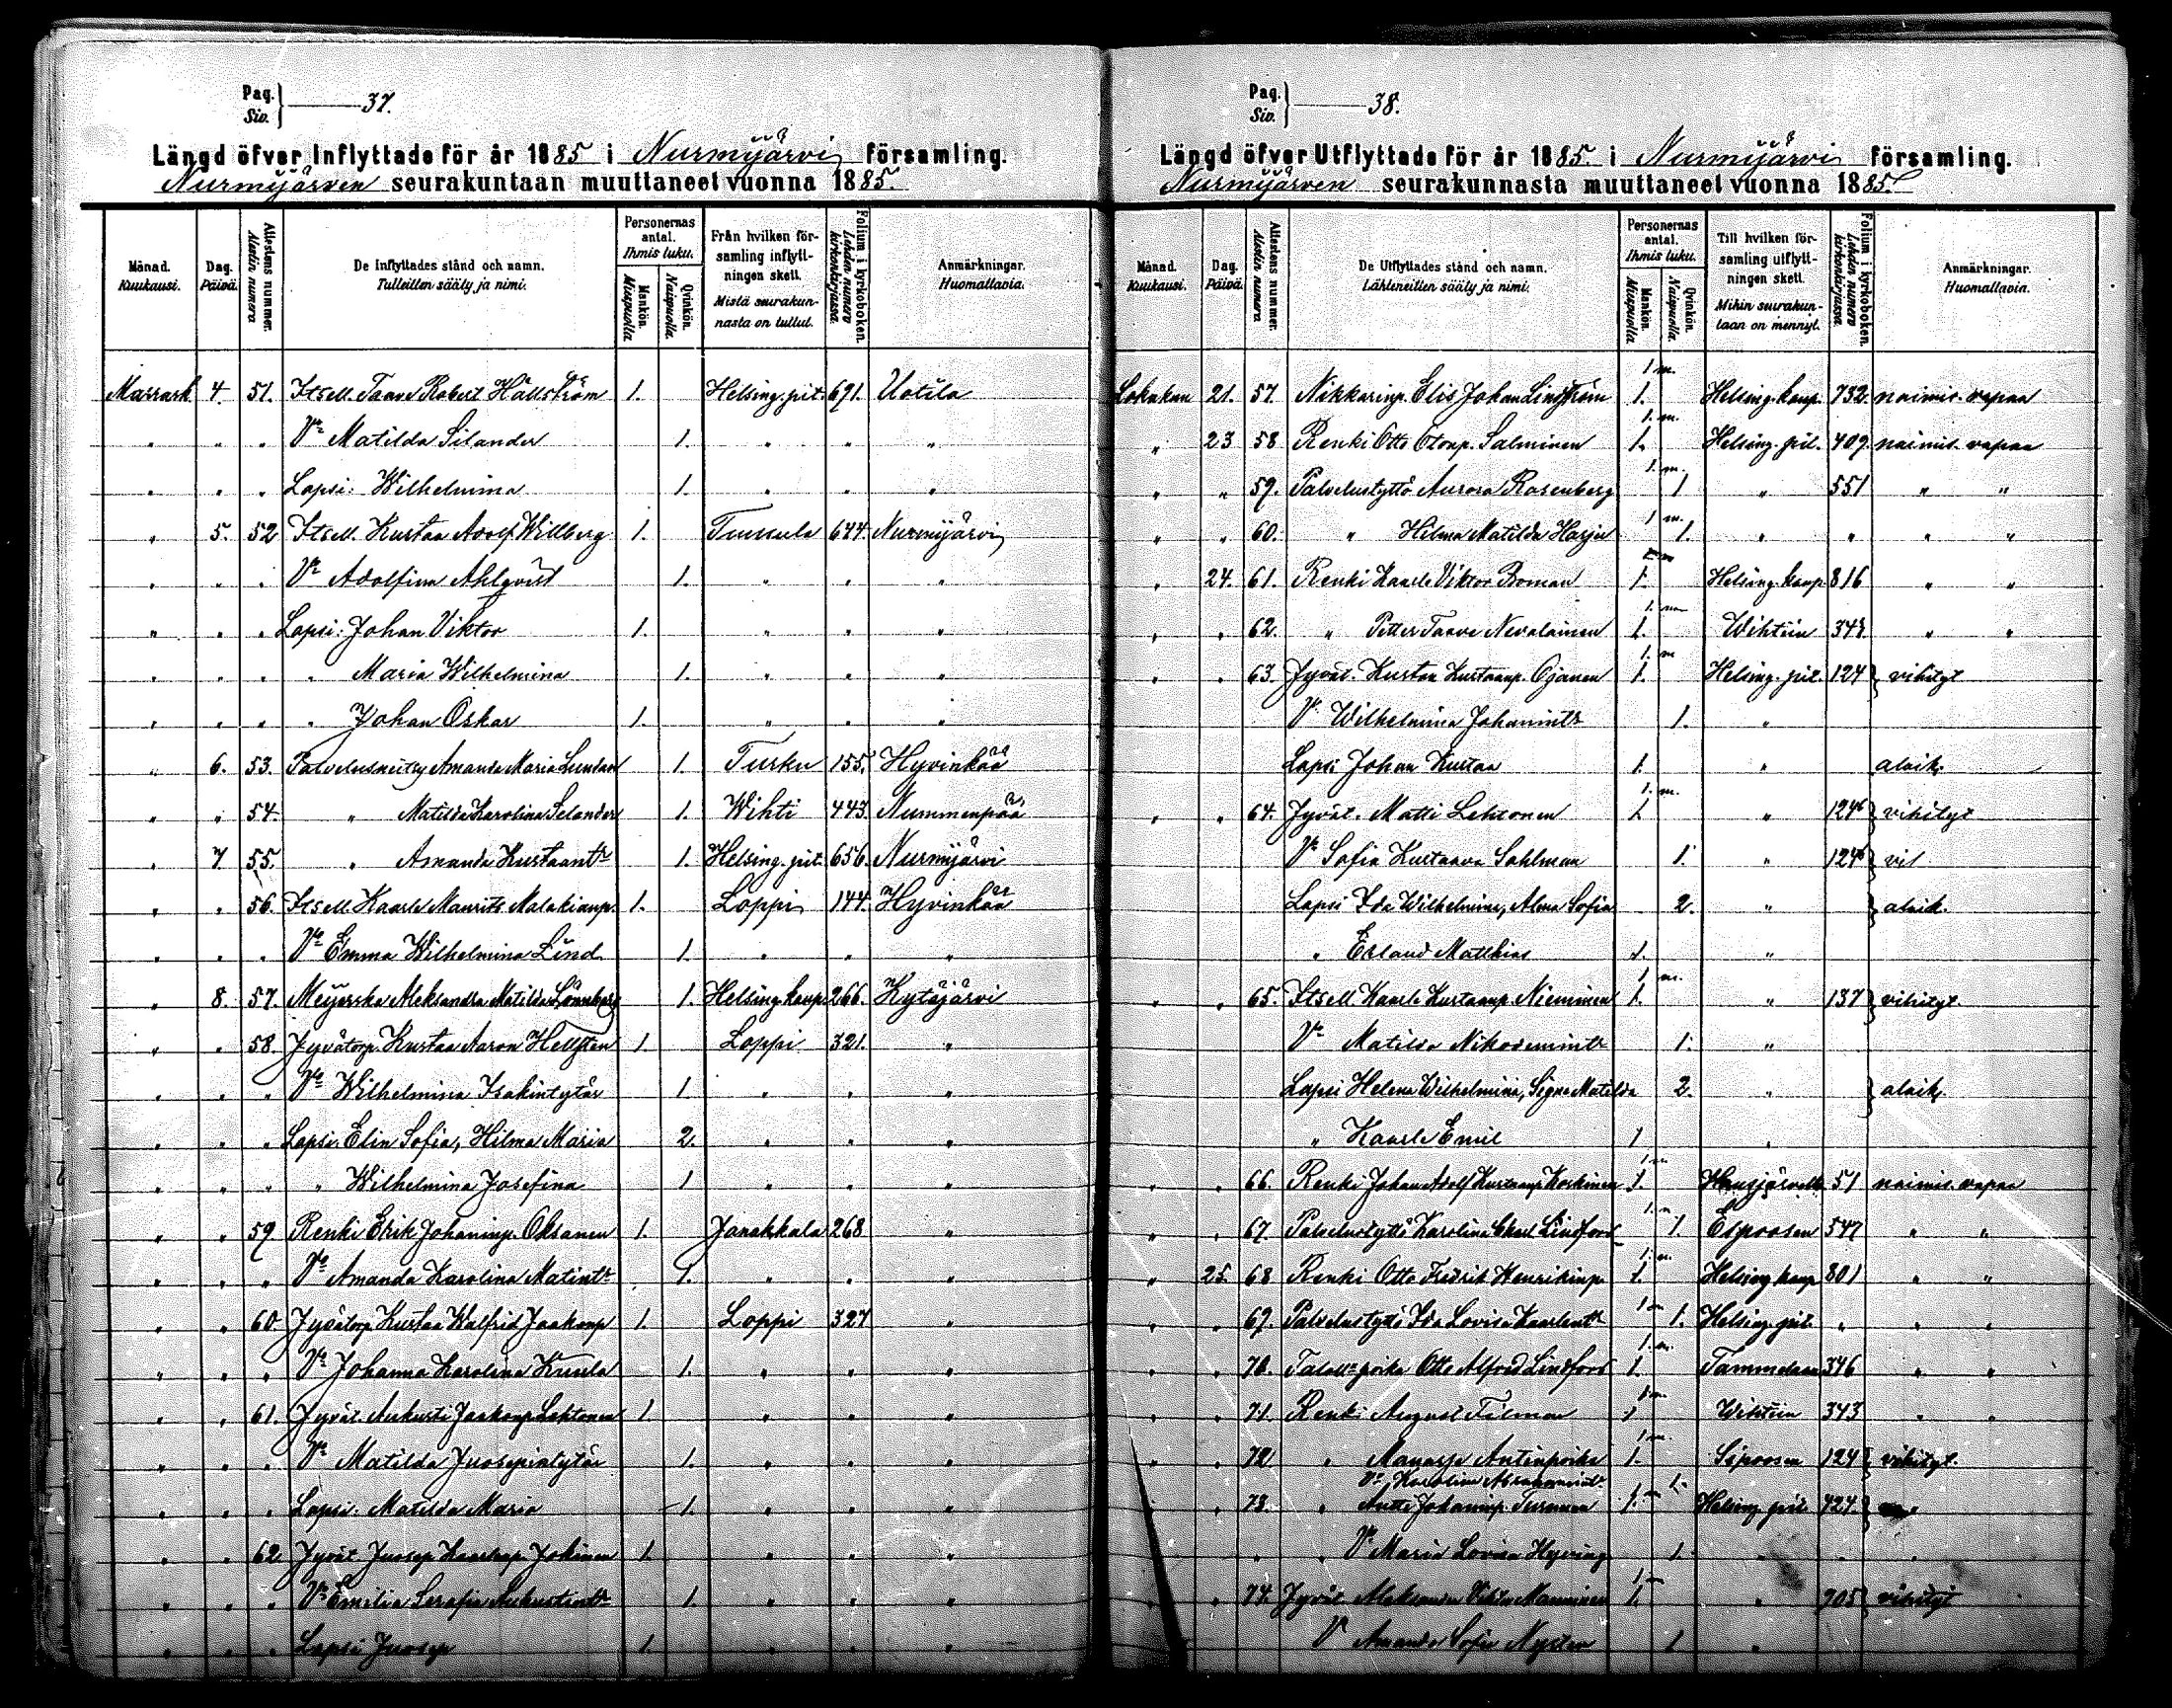 Pag. Siv. } 37.
Längd öfver Inflyttade för år 1885 i Nurmijärvi församling.
Nurmijärven seurakuntaan muuttaneet vuonna 1885.
Månad. Kuukausi. Dag. Päivä. Attestens nummer. Atestin numero De Inflyttades stånd och namn. Tulleitten sääty ja nimi. Personernas antal. Ihmis luku. Mankön. Miespuolia Qvinkön. Naispuolia. Från hvilken församling inflyttningen skett. Mistä seurakunnasta on tullut. Folium i kyrkoboken. Lehden numero kirkonkirjassa. Anmärkningar. Huomattavia.
Marrask 4. 51. Itsell. Taave Robert Hällström 1. Helsing. pit. 691. Uotila
" " " Vo Matilda Silander 1. " " "
" " " Lapsi: Wilhelmina 1. " " "
" 5. 52 Itsell. Kustaa Adolf Willberg 1. Tuusula 644. Nurmijärvi
" " " Vo Adolfina Ahlqvist 1. " " "
" " " Lapsi: Johan Viktor 1. " " "
" " " " Maria Wilhelmina 1. " " "
" " " " Johan Oskar 1. " " "
" 6. 53. Palvelusneitsy Amanda Maria Lundan 1. Turku 155. Hyvinkää
" " 54. " Matilda Karolina Selander 1. Wihti 443. Nummenpää
" 7 55. " Amanda Kustaantr 1. Helsing. pit. 656. Nurmijärvi
" " 56. Itsell Kaarle Maurits Malakianp. 1. Loppi 144. Hyvinkää
" " " Vo Emma Wilhelmina Lind 1. " " "
" 8. 57. Meijerska Aleksandra Matilda Lönnberg 1. Helsing. kaup 266. Kytäjärvi
" " 58. Jyvätorp. Kustaa Aaron Hellsten 1. Loppi 321. "
" " " Vo Wilhelmina Isakintytär 1. " " "
" " " Lapsi: Elin Sofia, Hilma Maria 2. " " "
" " " " Wilhelmina Josefina 1 " " "
" " 59 Renki Erik Johaninp. Oksanen 1. Janakkala 268 "
" " " Vo Amanda Karolina Matintr 1. " " "
" " 60. Jyvätorp Kustaa Walfrid Jaakonp 1. Loppi 327 "
" " " Vo Johanna Karolina Kuula 1. " " "
" " 61. Jyvät. Aukusti Jaakonp Lehtonen 1. " " "
" " " Vo Matilda Juosepintytär 1. " " "
" " " Lapsi: Matilda Maria 1. " " "
" " 62 Jyvät Juosep Kaarlenp Jokinen 1. " " "
" " " Vo Emilia Serafia Aukustintr 1. " " "
" " " Lapsi Juosep 1. " " "
Pag. Siv. } 38.
Längd öfver Utflyttade för år 1885. i Nurmijärvi församling.
Nurmijärven seurakunnasta muuttaneet vuonna 1885
Månad. Kuukausi. Dag. Päivä. Attestens nummer. Atestin numero De Utflyttades stånd och namn. Lähteneitten sääty ja nimi. Personernas antal. Ihmis luku. Mankön. Miespuolia Qvinkön. Naispuolia. Till hvilken församling utflyttningen skett. Mihin seurakuntaan on mennyt. Folium i kyrkoboken. Lehden numero kirkonkirjassa. Anmärkningar. Huomattavia.
Lokakun 21. 57. Nikkarinp. Elis Johan Lindström 1 m. 1. Helsing. kaup. 732. naimis. vapaa
" 23 58 Renki Otto Otonp. Salminen 1. m. 1. Helsing. pit. 409. naimis. vapaa
" " 59. Palvelustyttö Aurora Rosenberg 1. m. 1 " 551 " "
" " 60. " Hilma Matilda Harju 1 m. 1. " " " "
" 24. 61. Renki Kaarle Viktor Boman 1. Helsing. kaup 816 " "
" " 62. " Petter Taave Nevalainen 1. m 1. Wihtiin 348. " "
" " 63. Jyvät. Kustaa Kustaanp. Ojanen 1. m 1. Helsing. pit. 124 } vihityt
Vo Wilhelmina Johanintr 1. "
Lapsi Johan Kustaa 1. " alaik.
" " 64. Jyvät. Matti Lehtonen 1. m. 1 " 124 } vihityt
Vo Sofia Kustaava Sahlman 1. " 124 } vil
Lapsi Ida Wilhelmina, Alma Sofia 2. " } alaik.
" Erland Matthias 1. "
" " 65. Itsell Kaarle Kustaanp. Nieminen 1 m. 1. " 137 } vihityt.
Vo Matilda Nikodemintr 1. "
Lapsi Helena Wilhelmina, Signe Matilda 2. " } alaik.
" Kaarle Emil 1 "
" " 66. Renki Johan Adolf Kustaanp Koskinen 1 m 1. 51 naimis. vapaa
" " 67. Palvelustyttö Karolina Lindfors 1. m 1. Espoosen 547 " "
" 25. 68 Renki Otto Fredrik Henrikinp 1. m. 1. Helsing kaup 801 " "
" " 69. Palvelustyttö Ida Lovisa Kaarlentr 1 m 1. Helsing. pit. " " "
" " 70. Otto Alfred Lindfors 1. m. 1. Tammelaan 346 " "
" " 71. Renki August Filman 1 m 1 Wihtiin 343 " "
" " 72 " Manasse Antinpoika 1 m. 1. Sipoosen 124 } vihityt.
Vo Karolina 1.
" " 73. " Antti Johaninp. 1. Helsing pit. 424. }
" " Vo Maria Lovisa 1 " "
" " 74. Jyvät Aleksander Manninen 1. " 905 } vihityt
Vo Amanda Sofia Nysten 1 "